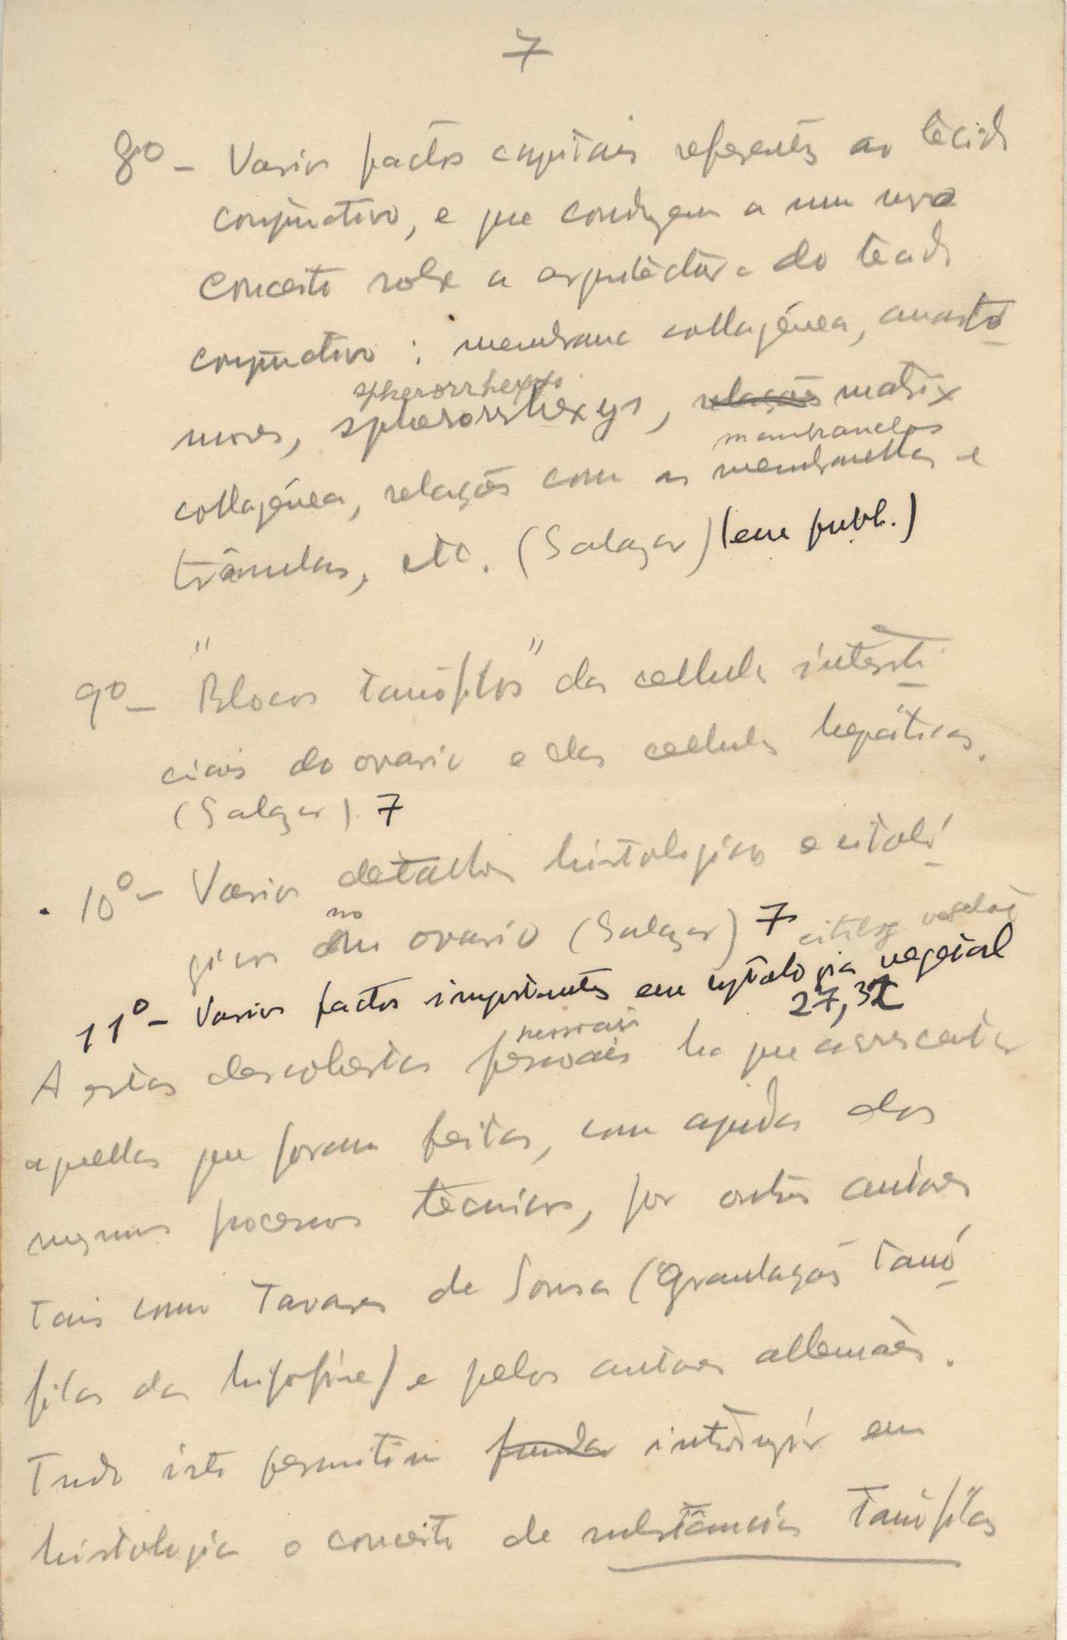 7
8º - Varios factos capitais referentes ao tecido
conjunctivo, e que conduzem a um novo
conceito sobre a arquitectura do tecido
conjunctivo : membrana collagénea, anasto-
spherorrhexys
moses, spherorrhexys, relações matrix
membranelas
collagénea, relações com as membranellas e
trâmulas, etc. (Salazar) (em publ.)
9º - "Blocos tanófilos" das cellulas intersti-
ciais do ovario e das cellulas hepáticas.
(Salazar). 7
10º - Varios detalhes histologicos e citoló-
no
gicos do ovario (Salazar) 7 citolog vegetal
11º - Varios factos importantes em cytologia vegetal
27, 32
pessoais
A estas descobertas pessoais ha que acrescentar
aquellas que foram feitas, com ajuda dos
mesmos processos tecnicos, por outros autores
tais como Tavares de Sousa (Granulações tanó-
filas da hipofise) e pelos autores allemães.
Tudo isto permitiu fundar introduzir em
histologia o conceito de substâncias tanófilas